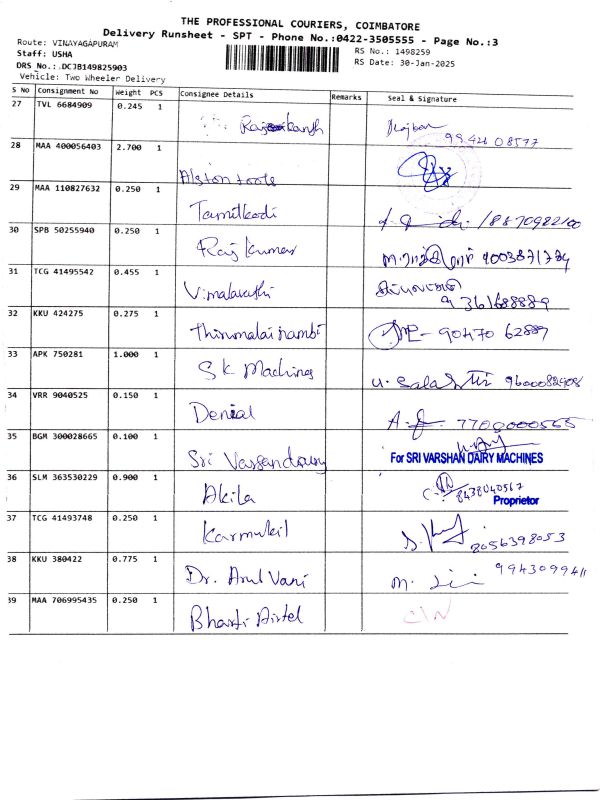 THE PROFESSIONAL COURIERS, COIMBATORE
Delivery Runsheet - SPT - Phone No.:0422-3505555 - Page No.:3
Route: VINAYAGAPURAM
Staff: USHA
DRS No.:.DCJB149825903
Vehicle: Two Wheeler Delivery
RS No.: 1498259
RS Date: 30-Jan-2025
S No Consignment No Weight PCS Consignee Details Remarks Seal & Signature
27 TVL 6684909 0.245 1
28 MAA 400056403 2.700 1
Alston tools
29 MAA 110827632 0.250 1
Tamilkodi
30 SPB 50255940 0.250 1
Raj Kumar
31 TCG 41495542 0.455 1
Vimalavathi
32 KKU 424275 0.275 1
Thirumalai nambi 90470 62889
33 APK 750281 1.000 1
SK Machines 9600082908
34 VRR 9040525 0.150 1
Denial
35 BGM 300028665 0.100 1
For SRI VARSHAN DAIRY MACHINES
Proprietor
36 SLM 363530229 0.900 1
Akila 8438040567
37 TCG 41493748 0.250 1
Karmukil 8056398053
38 KKU 380422 0.775 1
Dr. Arul Vani
39 MAA 706995435 0.250 1
Bharti Airtel